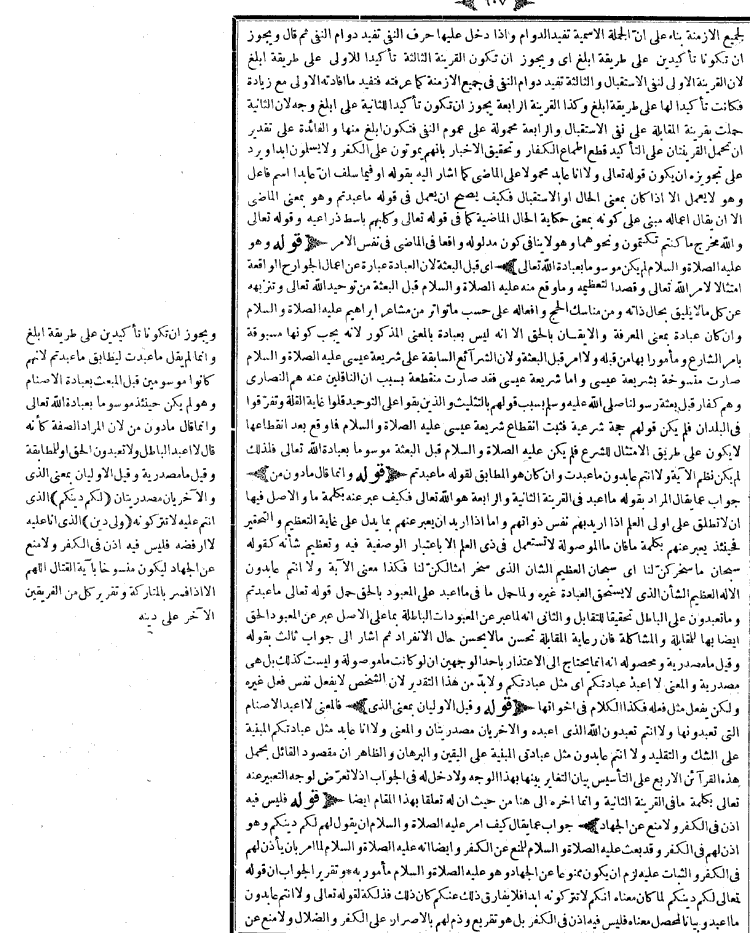 لجميع الازمنة بناء على ان الجملة الاسمية تفيد الدوام واذا دخل عليها حرف النفى تفيد دوام النفى ثم قال ويجوز
ان تكونا تأكيدين على طريقة ابلغ اى ويجوز ان تكون القرينة الثالثة تأكيدا للاولى على طريقة ابلغ
لان القرينة الاولى لنفى الاستقبال والثالثة تفيد دوام النفى فى جميع الازمنة كما عرفته فتفيد ما افادته الاولى مع زيادة
فكانت تأكيدا لها على طريقة ابلغ وكذا القرينة الرابعة يجوز ان تكون تأكيدا للثانية على ابلغ وجه لان الثانية
حملت بقرينة المقابلة على نفى الاستقبال والرابعة محمولة على عموم النفى فتكون ابلغ منها والفائدة على تقدير
ان تحمل القرينتان على التأكيد قطع اطماع الكفار وتحقيق الاخبار بانهم يموتون على الكفر ولا يسلون ابدا ويرد
على تجويزه ان يكون قوله تعالى ولا انا عابد محمولا على الماضى كما اشار اليه بقوله او فيما سلف ان عابدا اسم فاعل
وهو لا يعمل الا اذا كان بمعنى الحال او الاستقبال فكيف يصح ان يعمل فى قوله ما عبدتم وهو بمعنى الماضى
الا ان يقال اعماله مبنى على كونه بمعنى حكاية الحال الماضية كما فى قوله تعالى وكلبهم باسط ذراعيه وقوله تعالى
والله مخرج ما كنتم تكتمون ونحوهما وهو لا ينافى كون مدلوله واقعا فى الماضى فى نفس الامر ﴿قوله وهو
عليه الصلاة والسلام لم يكن موسوما بعبادة الله تعالى﴾ اى قبل البعثة لان العبادة عبارة عن اعمال الجوارح الواقعة
امتثالا لامر الله تعالى وقصدا لتعظيمه وما وقع منه عليه الصلاة والسلام قبل البعثة من توحيد الله تعالى وتنزيهه
عن كل ما لا يليق بحال ذاته ومن مناسك الحج وافعاله على حسب ما تواتر من مشاعر ابراهيم عليه الصلاة والسلام
وان كان عبادة بمعنى المعرفة والايقان بالحق الا انه ليس بعبادة بالمعنى المذكور لانه يجب كونها مسبوقة
بامر الشارع ومأمورا بها من قبله ولا امر قبل البعثة ولان الشرآئع السابقة على شريعة عيسى عليه الصلاة والسلام
صارت منسوخة بشريعة عيسى واما شريعة عيسى فقد صارت منقطعة بسبب ان الناقلين عنه هم النصارى
وهم كفار قبل بعثة رسولنا صلى الله عليه وسلم بسبب قولهم بالتثليث والذين بقوا على التوحيد قلوا غاية القلة وتفرقوا
فى البلدان فلم يكن قولهم حجة شرعية فثبت انقطاع شريعة عيسى عليه الصلاة والسلام فما وقع بعد انقطاعها
لا يكون على طريق الامتثال للشرع فلم يكن عليه الصلاة والسلام قبل البعثة موسوما بعبادة الله تعالى فلذلك
لم يكن نظم الآية ولا انتم عابدون ما عبدت وان كان هو المطابق لقوله ما عبدتم ﴿قوله وانما قال ما دون من﴾
جواب عما يقال المراد بقوله ما اعبد فى القرينة الثانية والرابعة هو الله تعالى فكيف عبر عنه بكلمة ما والاصل فيها
ان لا تطلق على اولى العلم اذا اريد بهم نفس ذواتهم واما اذا اريد ان يعبر عنهم بما يدل على غاية التعظيم والتحقير
فحينئذ يعبر عنهم بكلمة ما فان ما الموصولة لا تستعمل فى ذى العلم الا باعتبار الوصفية فيه وتعظيم شأنه كقوله
سبحان ما سخركن لنا اى سبحان العظيم الشان الذى سخر امثالكن لنا فكذا معنى الآية ولا انتم عابدون
الاله العظيم الشأن الذى لا يستحق العبادة غيره ولما حمل ما فى ما اعبد على المعبود بالحق حمل قوله تعالى ما عبدتم
وما تعبدون على الباطل تحقيقا للتقابل والثانى انه لما عبر عن المعبودات الباطلة بما على الاصل عبر عن المعبود الحق
ايضا بها للمقابلة والمشاكلة فان رعاية المقابلة تحسن ما لا يحسن حال الانفراد ثم اشار الى جواب ثالث بقوله
وقيل ما مصدرية ومحصوله انه انما يحتاج الى الاعتذار باحد الوجهين ان لو كانت ما موصولة وليست كذلك بل هى
مصدرية والمعنى لا اعبد عبادتكم اى مثل عبادتكم ولا بد من هذا التقدير لان الشخص لا يفعل نفس فعل غيره
ولكن يفعل مثل فعله فكذا الكلام فى اخواتها ﴿قوله وقيل الاوليان بمعنى الذى﴾ فالمعنى لا اعبد الاصنام
التى تعبدونها ولا انتم تعبدون الله الذى اعبده والاخريان مصدريتان والمعنى ولا انا عابد مثل عبادتكم المبنية
على الشك والتقليد ولا انتم عابدون مثل عبادتى المبنية على اليقين والبرهان والظاهر ان مقصود القائل بحمل
هذه القرآئن الاربع على التأسيس بيان التغاير بينها بهذا الوجه ولا دخل له فى الجواب اذ لا تعرض لوجه التعبير عنه
تعالى بكلمة ما فى القرينة الثانية وانما اخره الى هنا من حيث ان له تعلقا بهذا المقام ايضا ﴿قوله فليس فيه
اذن فى الكفر ولا منع عن الجهاد﴾ جواب عما يقال كيف امر عليه الصلاة والسلام ان يقول لهم لكم دينكم وهو
اذن لهم فى الكفر وقد بعث عليه الصلاة والسلام للمنع عن الكفر وايضا انه عليه الصلاة والسلام لما امر بان يأذن لهم
فى الكفر والثبات عليه لزم ان يكون ممنوعا عن الجهاد وهو عليه الصلاة والسلام مأمور به * وتقرير الجواب ان قوله
تعالى لكم دينكم لما كان معناه انكم لا تتركونه ابدا فلا يفارق ذلك عنكم كان ذلك فذلكة لقوله تعالى ولا انتم عابدون
ما اعبد وبيانا لمحصل معناه فليس فيه اذن فى الكفر بل هو تقريع وذم لهم بالاصرار على الكفر والضلال ولا منع عن
ويجوز ان تكونا تأكيدين على طريقة ابلغ
وانما لم يقل ما عبدت ليطابق ما عبدتم لانهم
كانوا موسومين قبل المبعث بعبادة الاصنام
وهو لم يكن حينئذ موسوما بعبادة الله تعالى
وانما قال ما دون من لان المراد الصفة كأنه
قال لا اعبد الباطل ولا تعبدون الحق او للمطابقة
وقيل ما مصدرية وقيل الاوليان بمعنى الذى
والآخريان مصدريتان (لكم دينكم) الذى
انتم عليه لا تتركونه (ولى دين) الذى انا عليه
لا ارفضه فليس فيه اذن فى الكفر ولا منع
عن الجهاد ليكون منسوخا بآية القتال اللهم
الا اذا فسر بالمتاركة وتقرير كل من الفريقين
الآخر على دينه